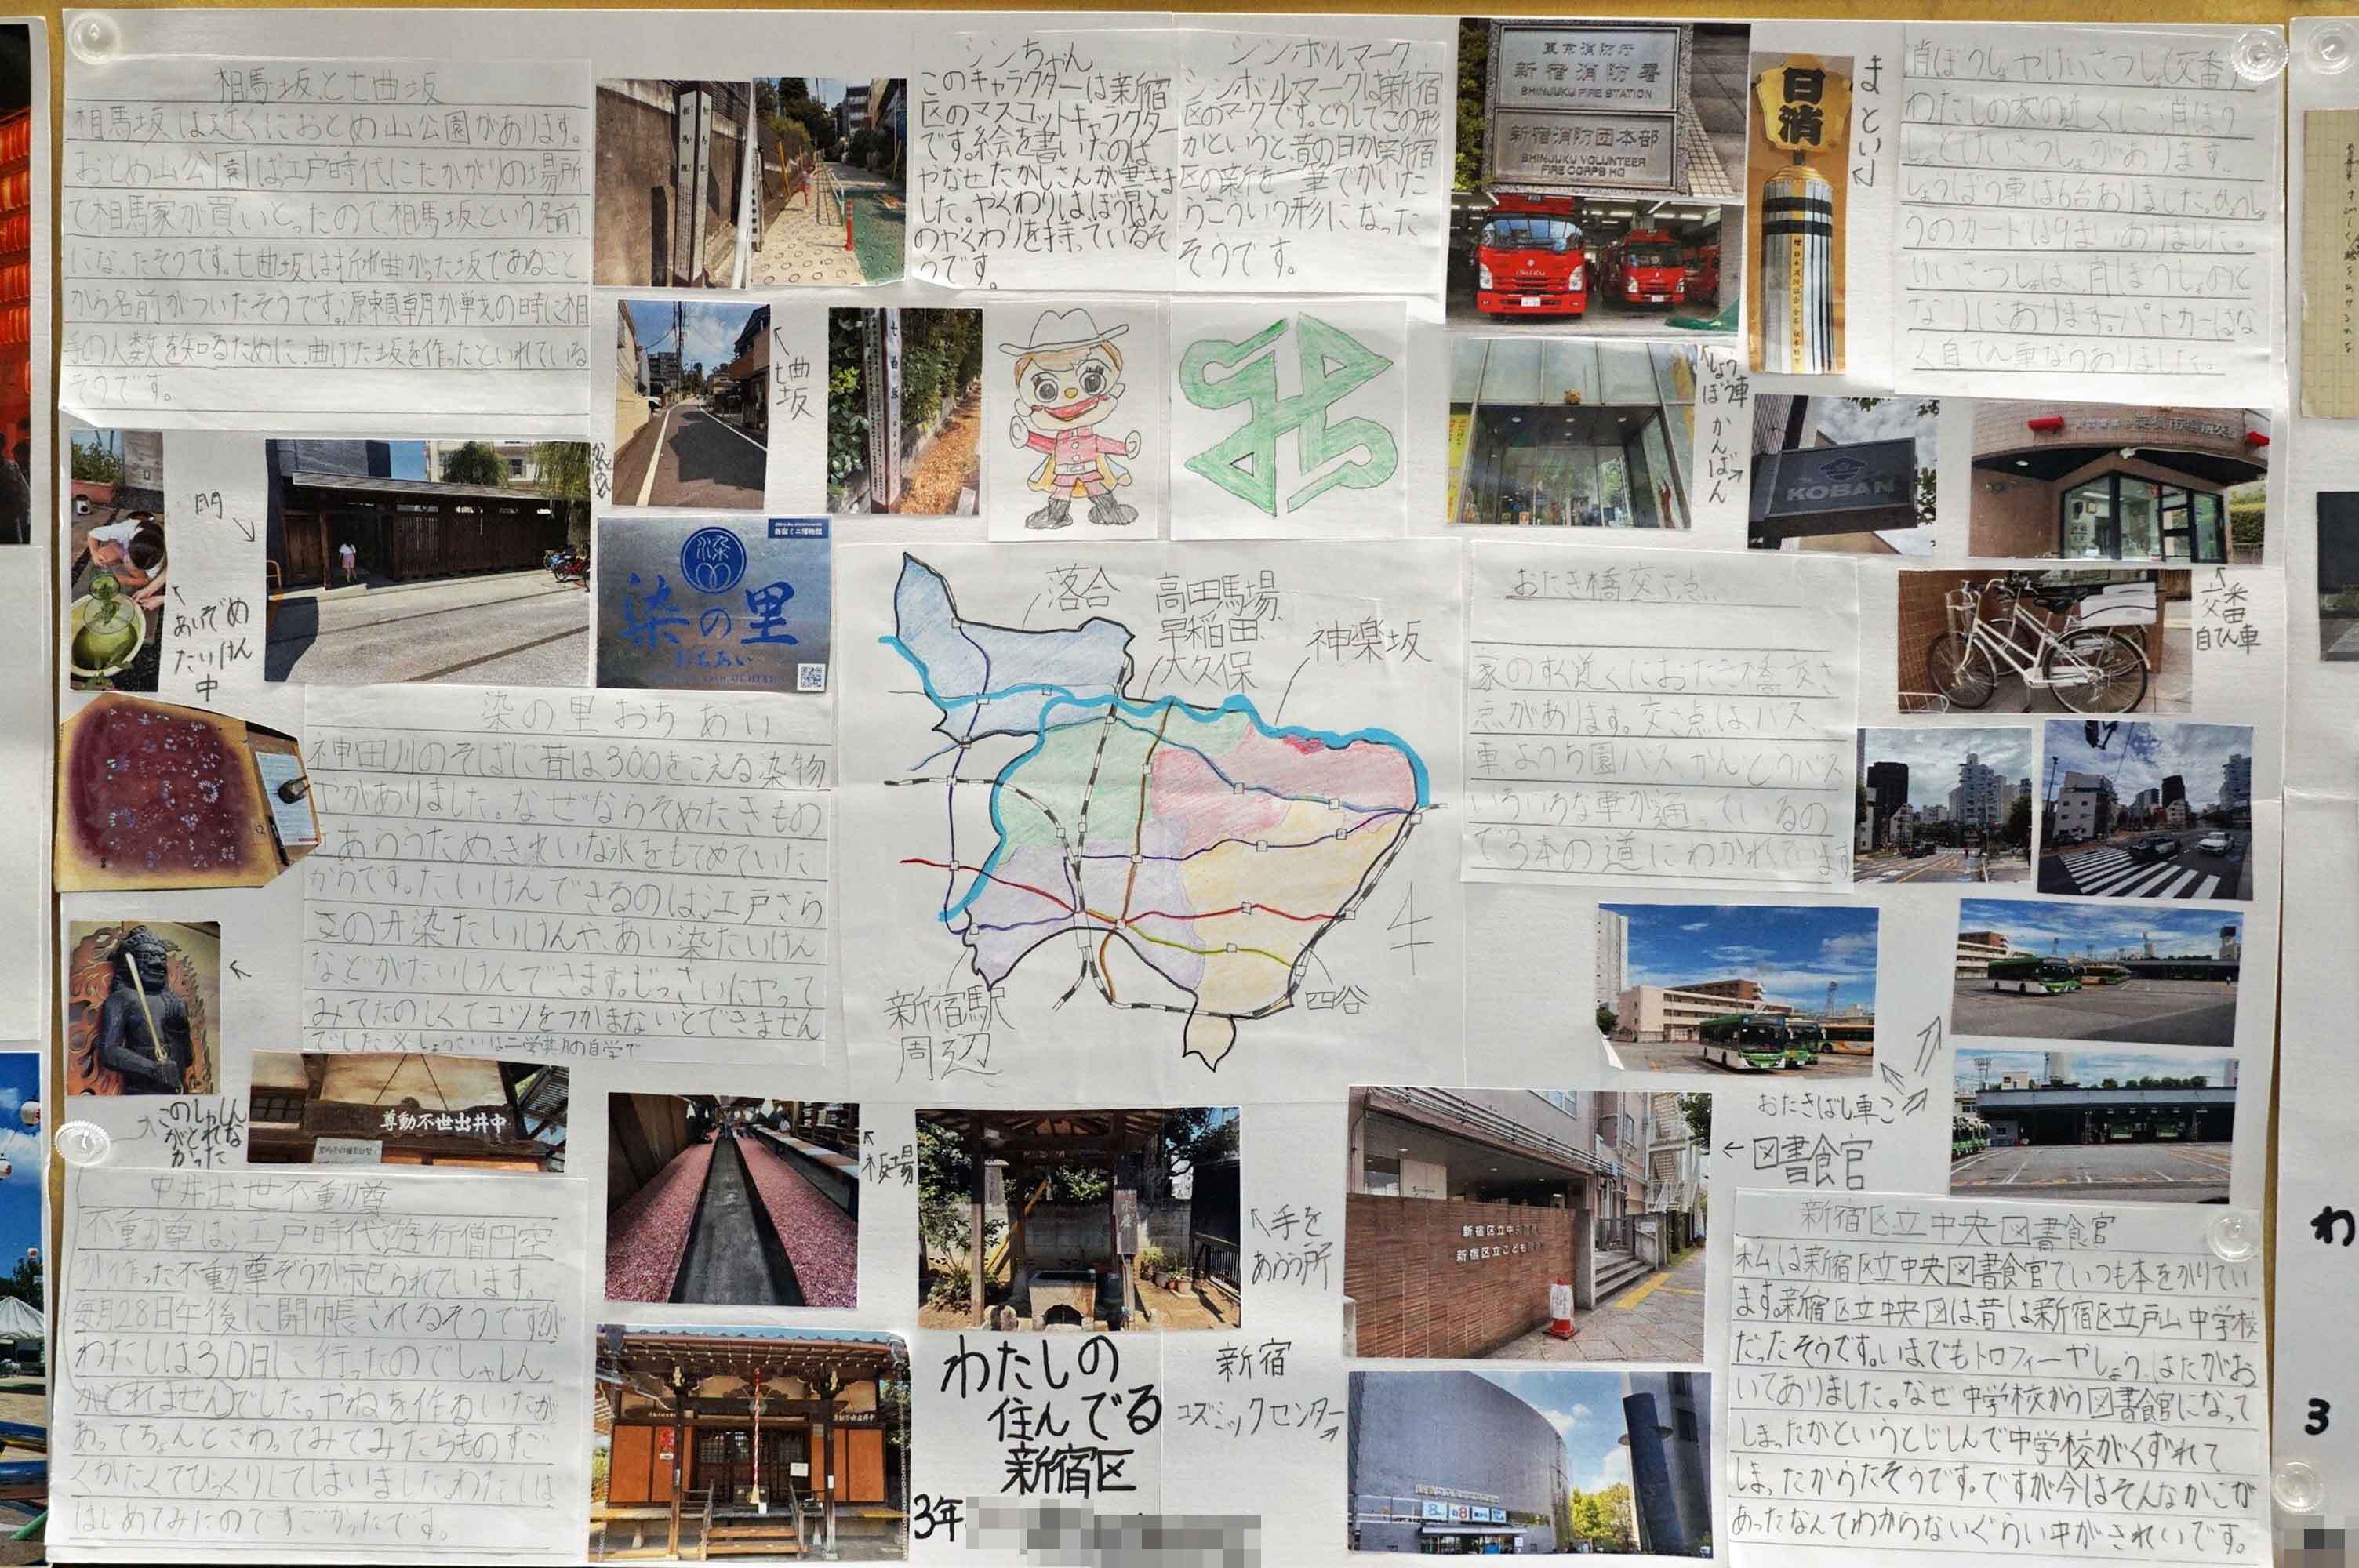 相馬坂と七曲坂
相馬坂は近くにおとめ山公園があります。
おとめ山公園は江戸時代にたかがりの場所
で相馬家が買いとったので相馬坂という名前
になったそうです。七曲坂は折れ曲がった坂であること
から名前がついたそうです。源頼朝が戦の時に相
手の人数を知るために、曲げた坂を作ったといれている
そうです。
シンちゃん
このキャラクターは新宿
区のマスコットキャラクター
です。絵を書いたのは
やなせたかしさんが書きま
した。やくわりはぼう犯
のやくわりを持っているそ
うです。
シンボルマーク
シンボルマークは新宿
区のマークです。どうしてこの形
かというと、昔の日か新宿
区の新を一筆でかいた
らこういう形になった
そうです。
東京消防庁
新宿消防署
SHINJUKU FIRE STATION
新宿消防団本部
SHINJUKU VOLUNTEER
FIRE CORPS HQ
日消
まとい
消ぼうしょやけいさつしょ(交番)
わたしの家の近くに消ぼう
しょとけいさつしょがあります。
しょうぼう車は6台ありました。
のカードは9まいありました。
けいさつしょは、消ぼうしょのと
なりにあります。パトカーはな
く自てん車ならありました。
七曲坂
しょうぼう車
かんばん
KOBAN
交番
自てん車
門
あいぞめ
たいけん
中
新宿ミニ博物館
染の里
おちあい
染の里おちあい
神田川のそばに昔は300をこえる染物
やがありました。なぜならそめたきもの
をあらうため、きれいな水をもとめていた
からです。たいけんできるのは江戸さら
さの丹染たいけんや、あい染たいけん
などがたいけんできます。じっさいにやって
みてたのしくてコツをつかまないとできません
でした ※しょうさいは二学期の自学で
落合
高田馬場
早稲田
大久保
神楽坂
新宿駅
周辺
四谷
おたき橋交さ点
家のすぐ近くにおたき橋交さ
点があります。交さ点はバス、
車、ようち園バス、かんこうバス
いろいろな車が通っているの
で3本の道にわかれています
おたきばし車こ
このしゃしん
がとれな
かった
中井出世不動尊
中井出世不動尊
不動尊は江戸時代遊行僧円空
が作った不動尊ぞうが祀られています。
毎月28日午後に開帳されるそうですが
わたしは30日に行ったのでしゃしん
がとれませんでした。やねを作るいたが
あってちょんとさわってみてみたらものすご
くかたくてびっくりしてしまいました。わたしは
はじめてみたのですごかったです。
板場
手を
あらう所
図書館
新宿区立中央
新宿区立こども
新宿区立中央図書館
私は新宿区立中央図書館でいつも本をかりてい
ます。新宿区立中央図は昔は新宿区立戸山中学校
だったそうです。いまでもトロフィーやしょう、はたがお
いてありました。なぜ中学校から図書館になって
しまったかというとじしんで中学校がくずれて
しまったからだそうです。ですが今はそんなかこが
あったなんてわからないぐらい中がきれいです。
新宿
コズミックセンター
わたしの
住んでる
新宿区
3年
わ
3